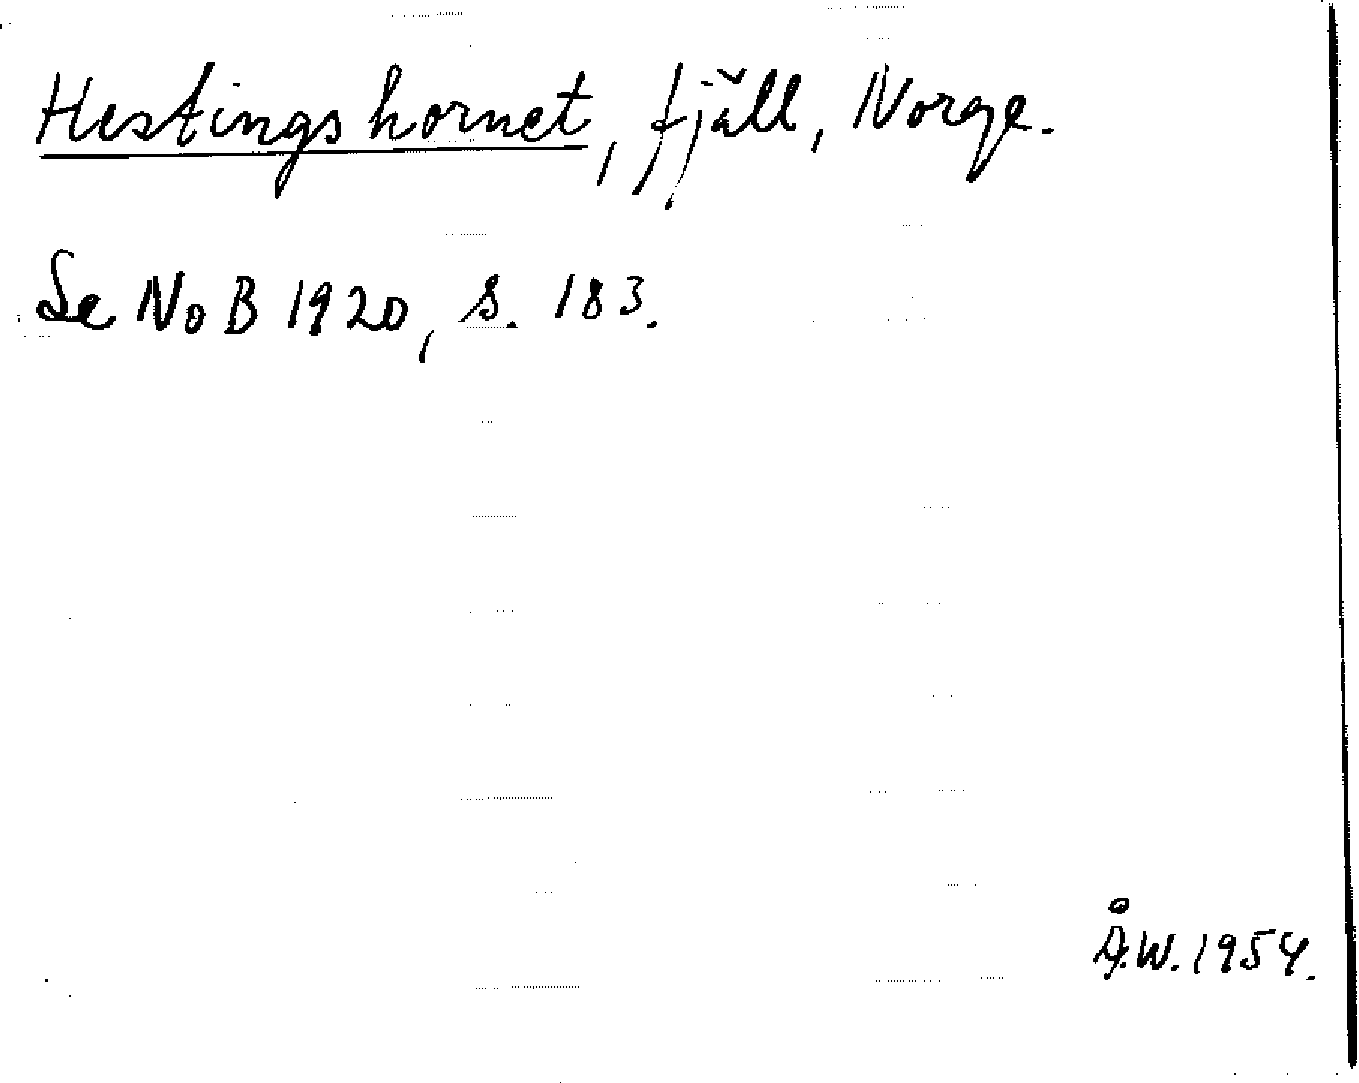 Hestingshornet, fjäll, Norge.
Se NoB 1920, s. 183.
Å.W. 1954.